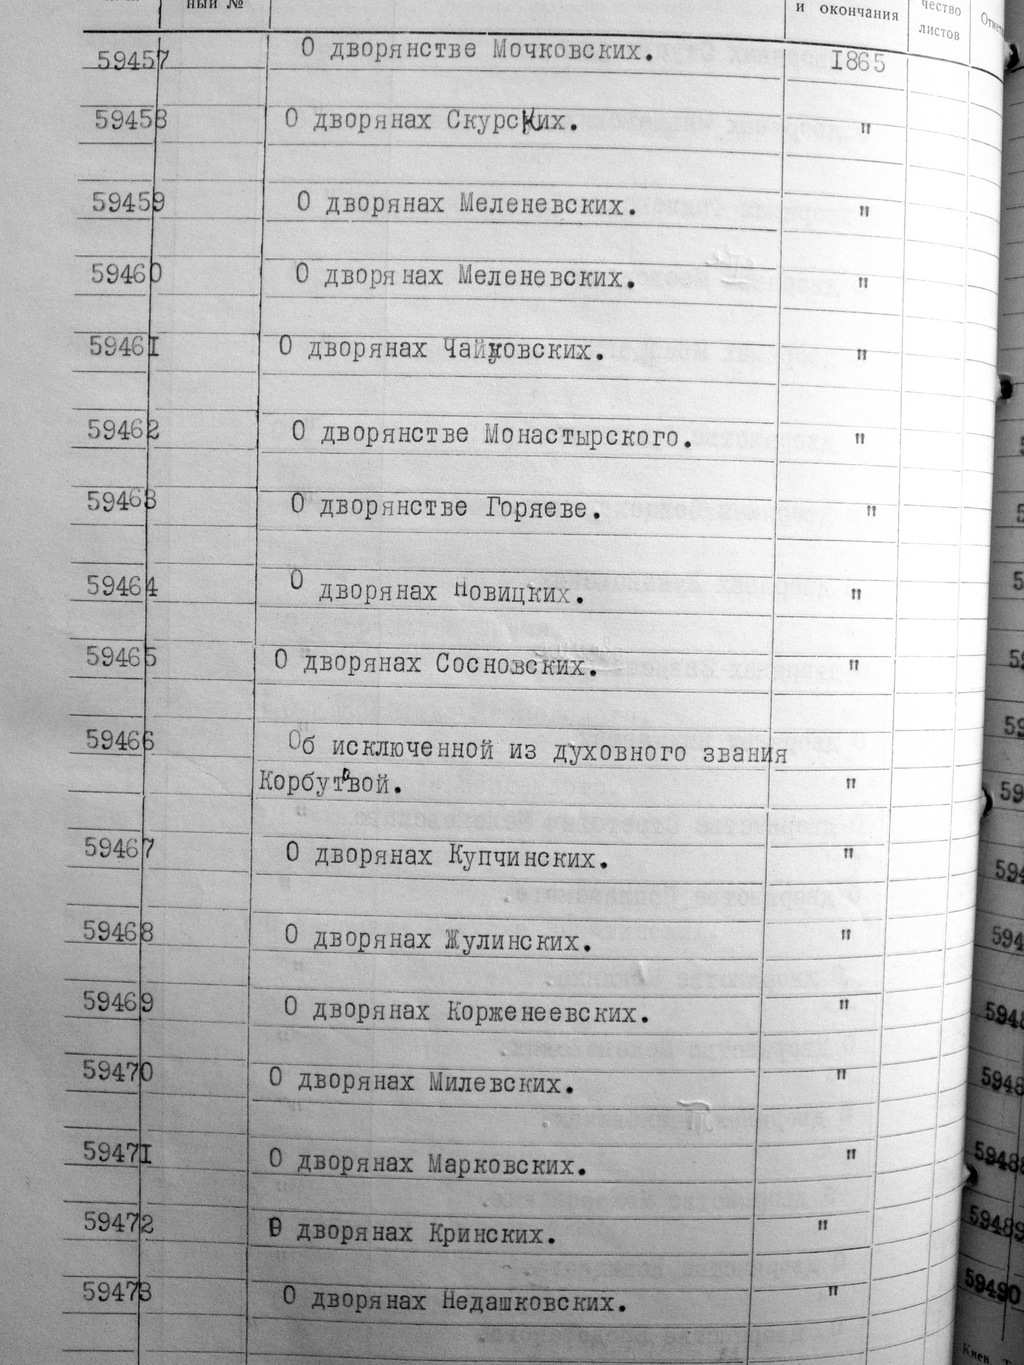 ный №
и окончания
чество
листов
59457 О дворянстве Мочковских. 1865
59458 О дворянах Скурских. "
59459 О дворянах Меленевских. "
59460 О дворянах Меленевских. "
59461 О дворянах Чайковских. "
59462 О дворянстве Монастырского. "
59463 О дворянстве Горяеве. "
59464 О дворянах Новицких. "
59465 О дворянах Сосновских. "
59466 Об исключенной из духовного звания
Корбутовой. "
59467 О дворянах Купчинских. "
59468 О дворянах Жулинских. "
59469 О дворянах Корженеевских. "
59470 О дворянах Милевских. "
59471 О дворянах Марковских. "
59472 О дворянах Кринских. "
59473 О дворянах Недашковских. "
59489
59490